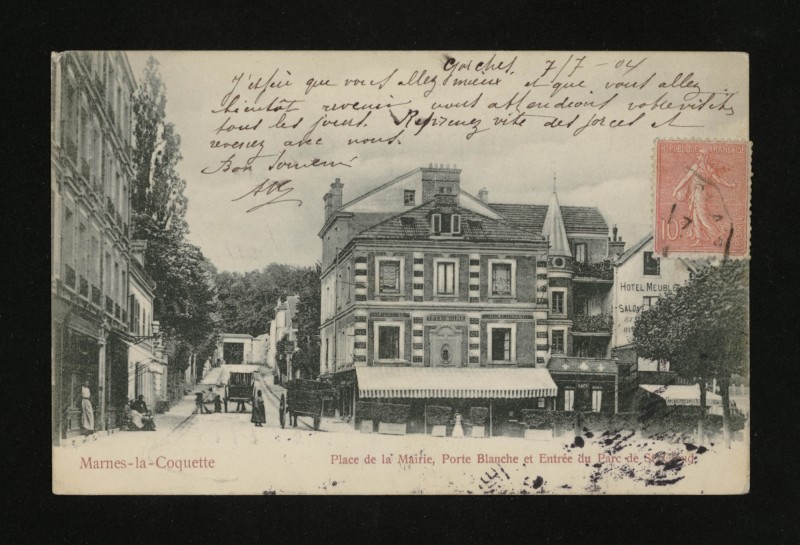 Garches 7/7-04
J'espère que vous allez mieux, et que vous allez
bientôt revenir nous attendions votre visite
tous les jours. Reprenez vite des forces et
revenez avec nous.
Bon souvenir
REPUBLIQUE FRANÇAISE
10
HOTEL MEUBLÉ
SALON
CAFÉ
Marnes-la-Coquette
Place de la Mairie, Porte Blanche et Entrée du Parc de